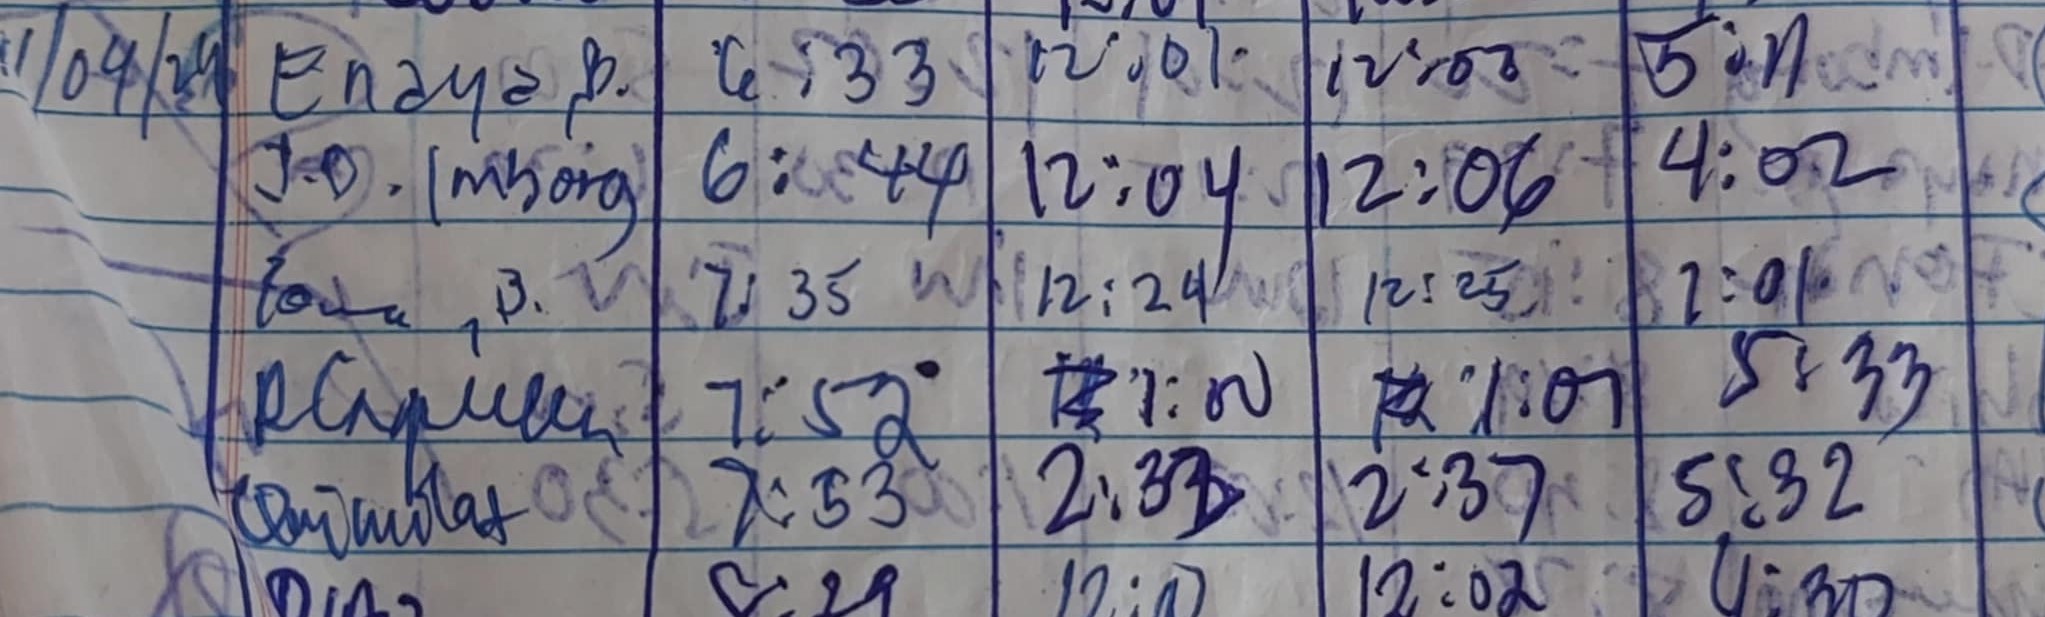 1/04/24 Enaya B. 6:33 12:01 12:03 5:11
J.D. Imborg 6:44 12:04 12:06 4:02
, B. 7:35 12:24 12:25 1:01
7:52 1:00 1:01 5:33
7:53 2:33 2:37 5:32
8:29 12:02 4:30